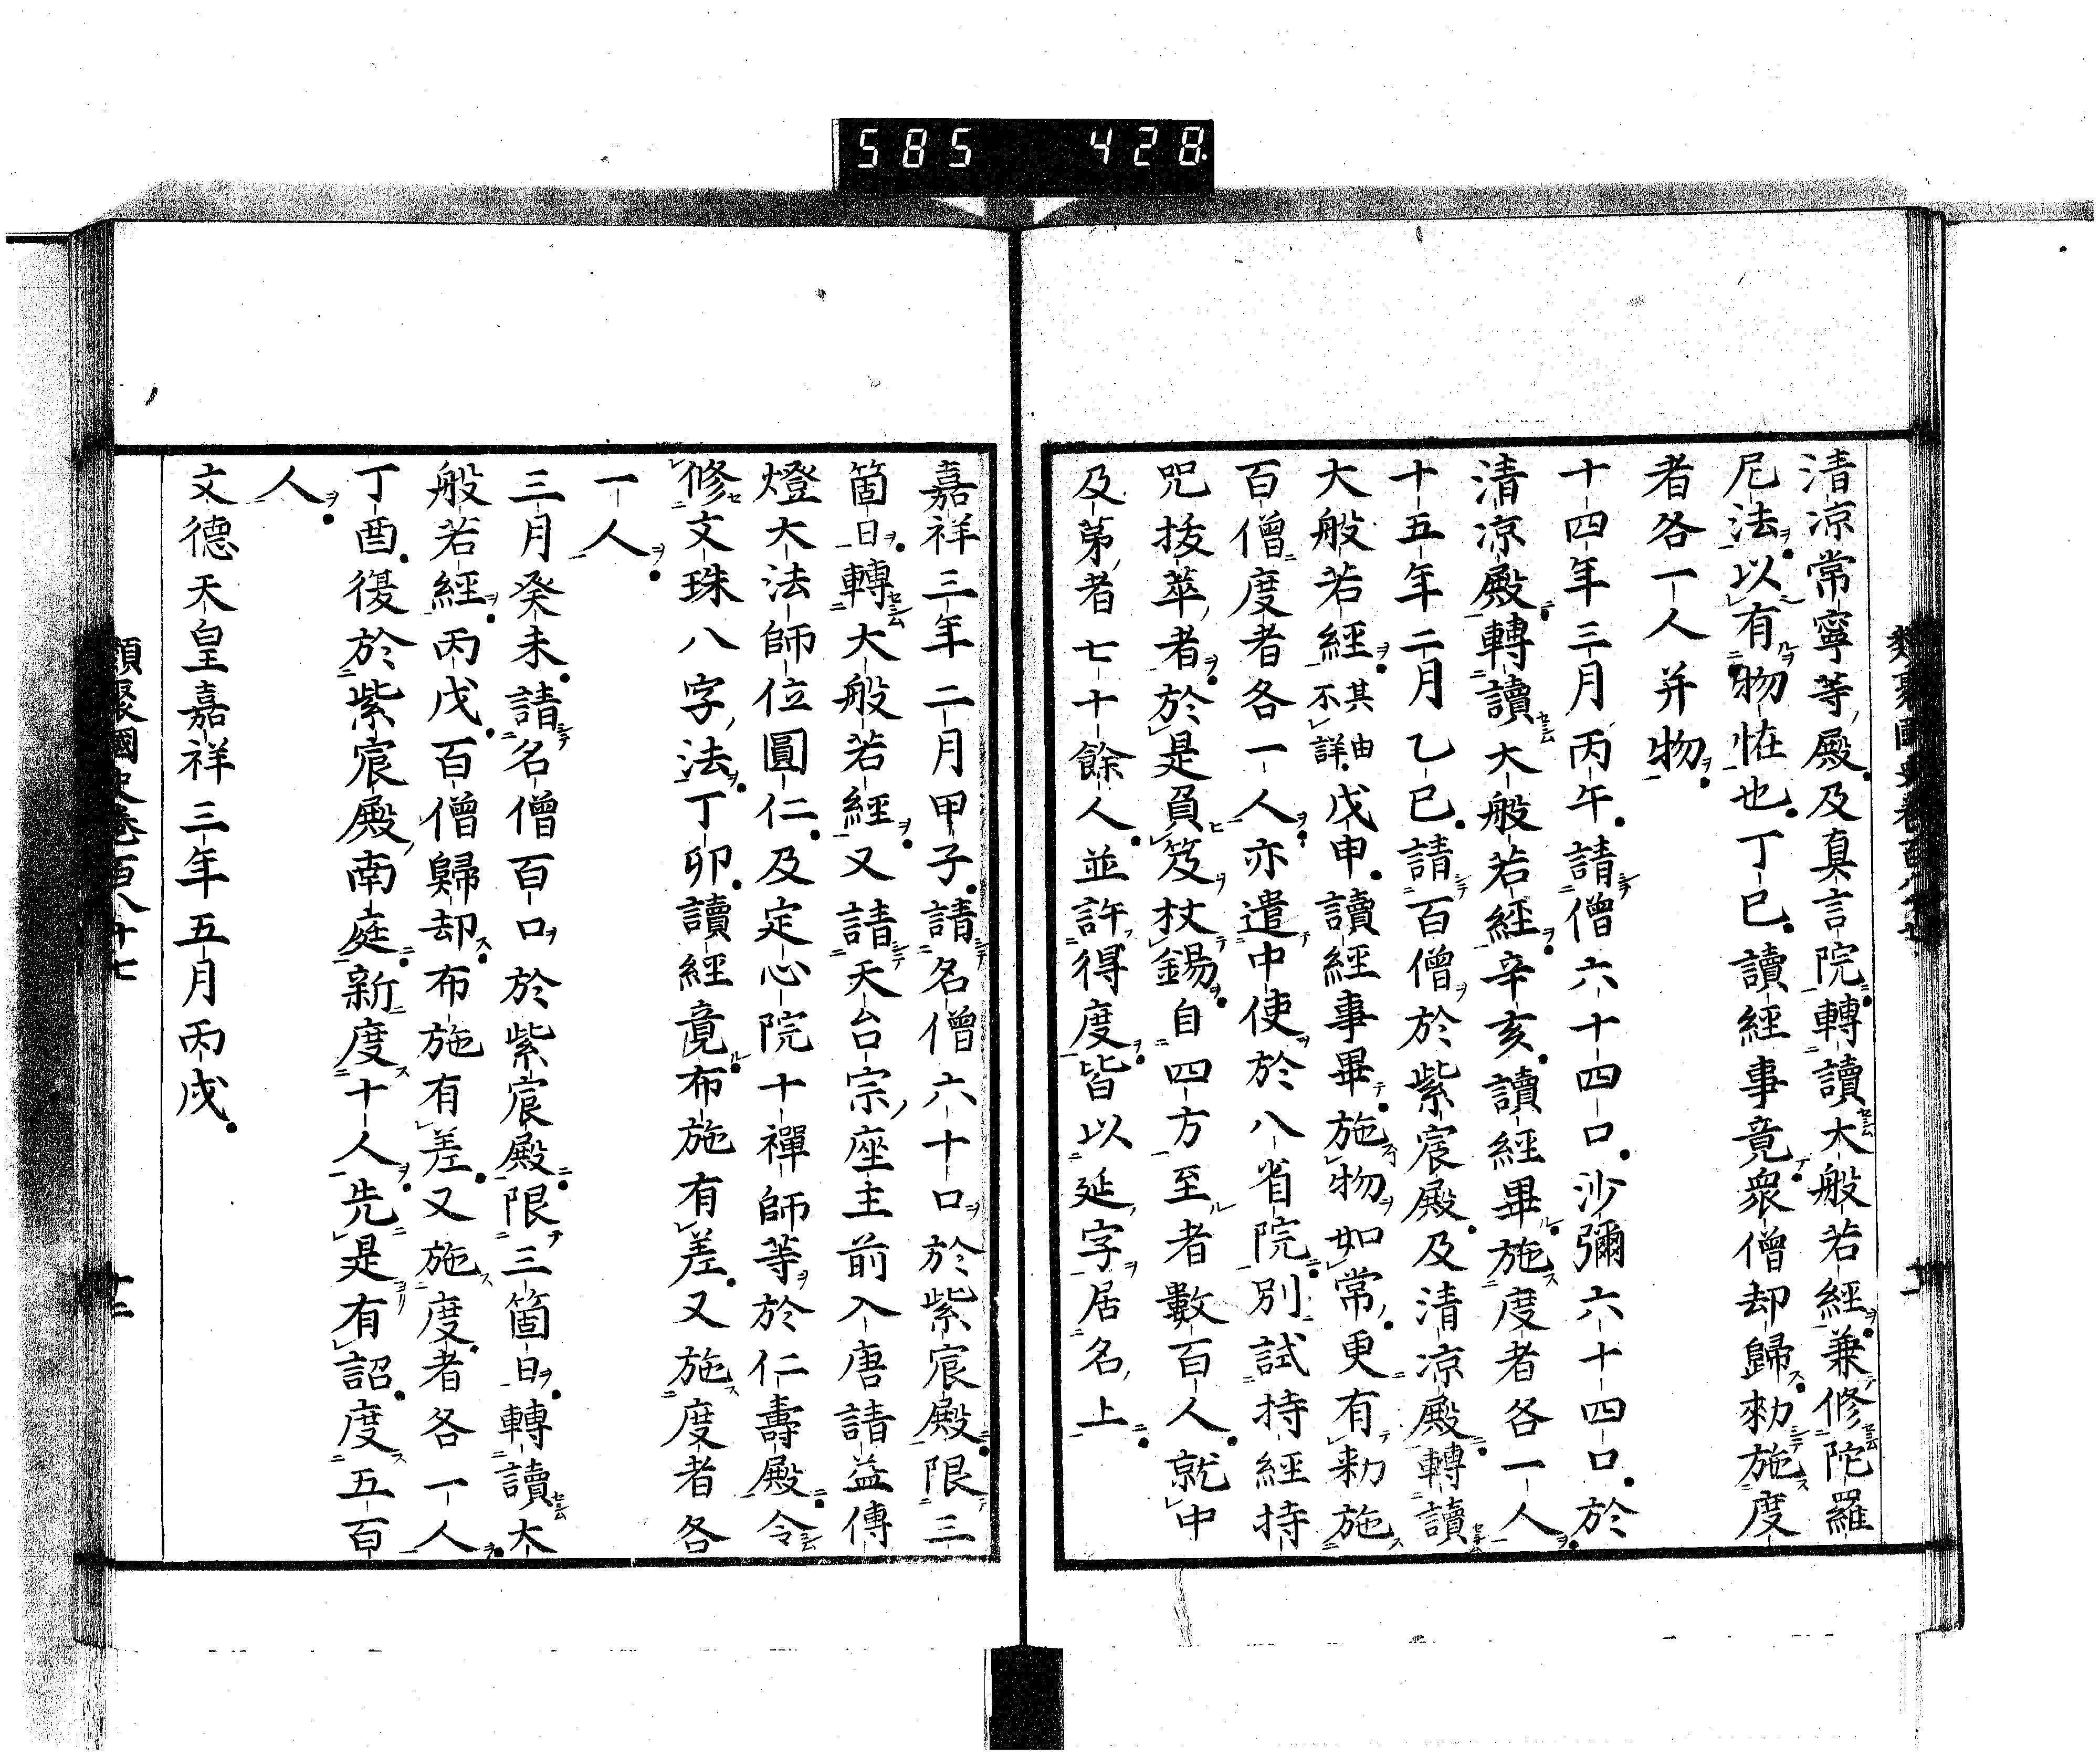 585 428
類聚國史卷百八十七 十一
清涼常寧等殿及真言院轉讀大般若經兼修陀羅
尼法以有物恠也丁巳讀經事竟衆僧却歸勑施度
者各一人并物
十四年三月丙午請僧六十四口沙彌六十四口於
清涼殿轉讀大般若經辛亥讀經畢施度者各一人
十五年二月乙巳請百僧於紫宸殿及清涼殿轉讀
大般若經其由不詳戊申讀經事畢施物如常更有勑施
百僧度者各一人亦遣中使於八省院別試持經持
咒拔萃者於是負笈杖錫自四方至者數百人就中
及第者七十餘人並許得度皆以延字居名上
嘉祥三年二月甲子請名僧六十口於紫宸殿限三
箇日轉大般若經又請天台宗座主前入唐請益傳
燈大法師位圓仁及定心院十禪師等於仁壽殿令
修文珠八字法丁卯讀經竟布施有差又施度者各
一人
三月癸未請名僧百口於紫宸殿限三箇日轉讀大
般若經丙戌百僧歸却布施有差又施度者各一人
丁酉復於紫宸殿南庭新度十人先是有詔度五百
人
文德天皇嘉祥三年五月丙戌
類聚國史卷百八十七 十二